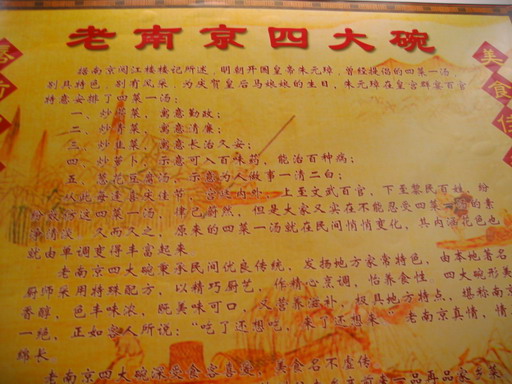 老南京四大碗
据南京阅江楼楼记所述，明朝开国皇帝朱元璋，曾经提倡的四菜一汤，
别具特色，别有风采，为庆贺皇后马娘娘的生日，朱元璋在皇宫群宴百官
特意安排了四菜一汤：
一、炒 菜，寓意勤政；
二、炒青菜，寓意清廉；
三、炒韭菜，寓意长治久安；
四、炒萝卜，示意可入百味药，能治百种病；
五、葱花豆腐汤，示意为人做事一清二白；
从此每逢喜庆佳节，宫廷内外，上至文武百官，下至黎民百姓，纷
纷 这四菜一汤，律己 然，但是大家又实在不能忍受四菜 的素
清淡，久而久之，原来的四菜一汤就在民间悄悄变化，其内涵花色也
就由单调变得丰富起来
老南京四大碗秉承民间优良传统，发扬地方家常特色，由本地著名
厨师采用特殊配方，以精巧厨艺，作精心烹调，怡养食性 四大碗形美
香醇，色丰味浓，既美味可口，营养滋补，极具地方特点，堪称南京
一绝，正如客人所说："吃了还想吃，来了还想来 老南京真情，情
绵长
老南京四大碗深受食客喜爱 美食名不虚传
美食佳